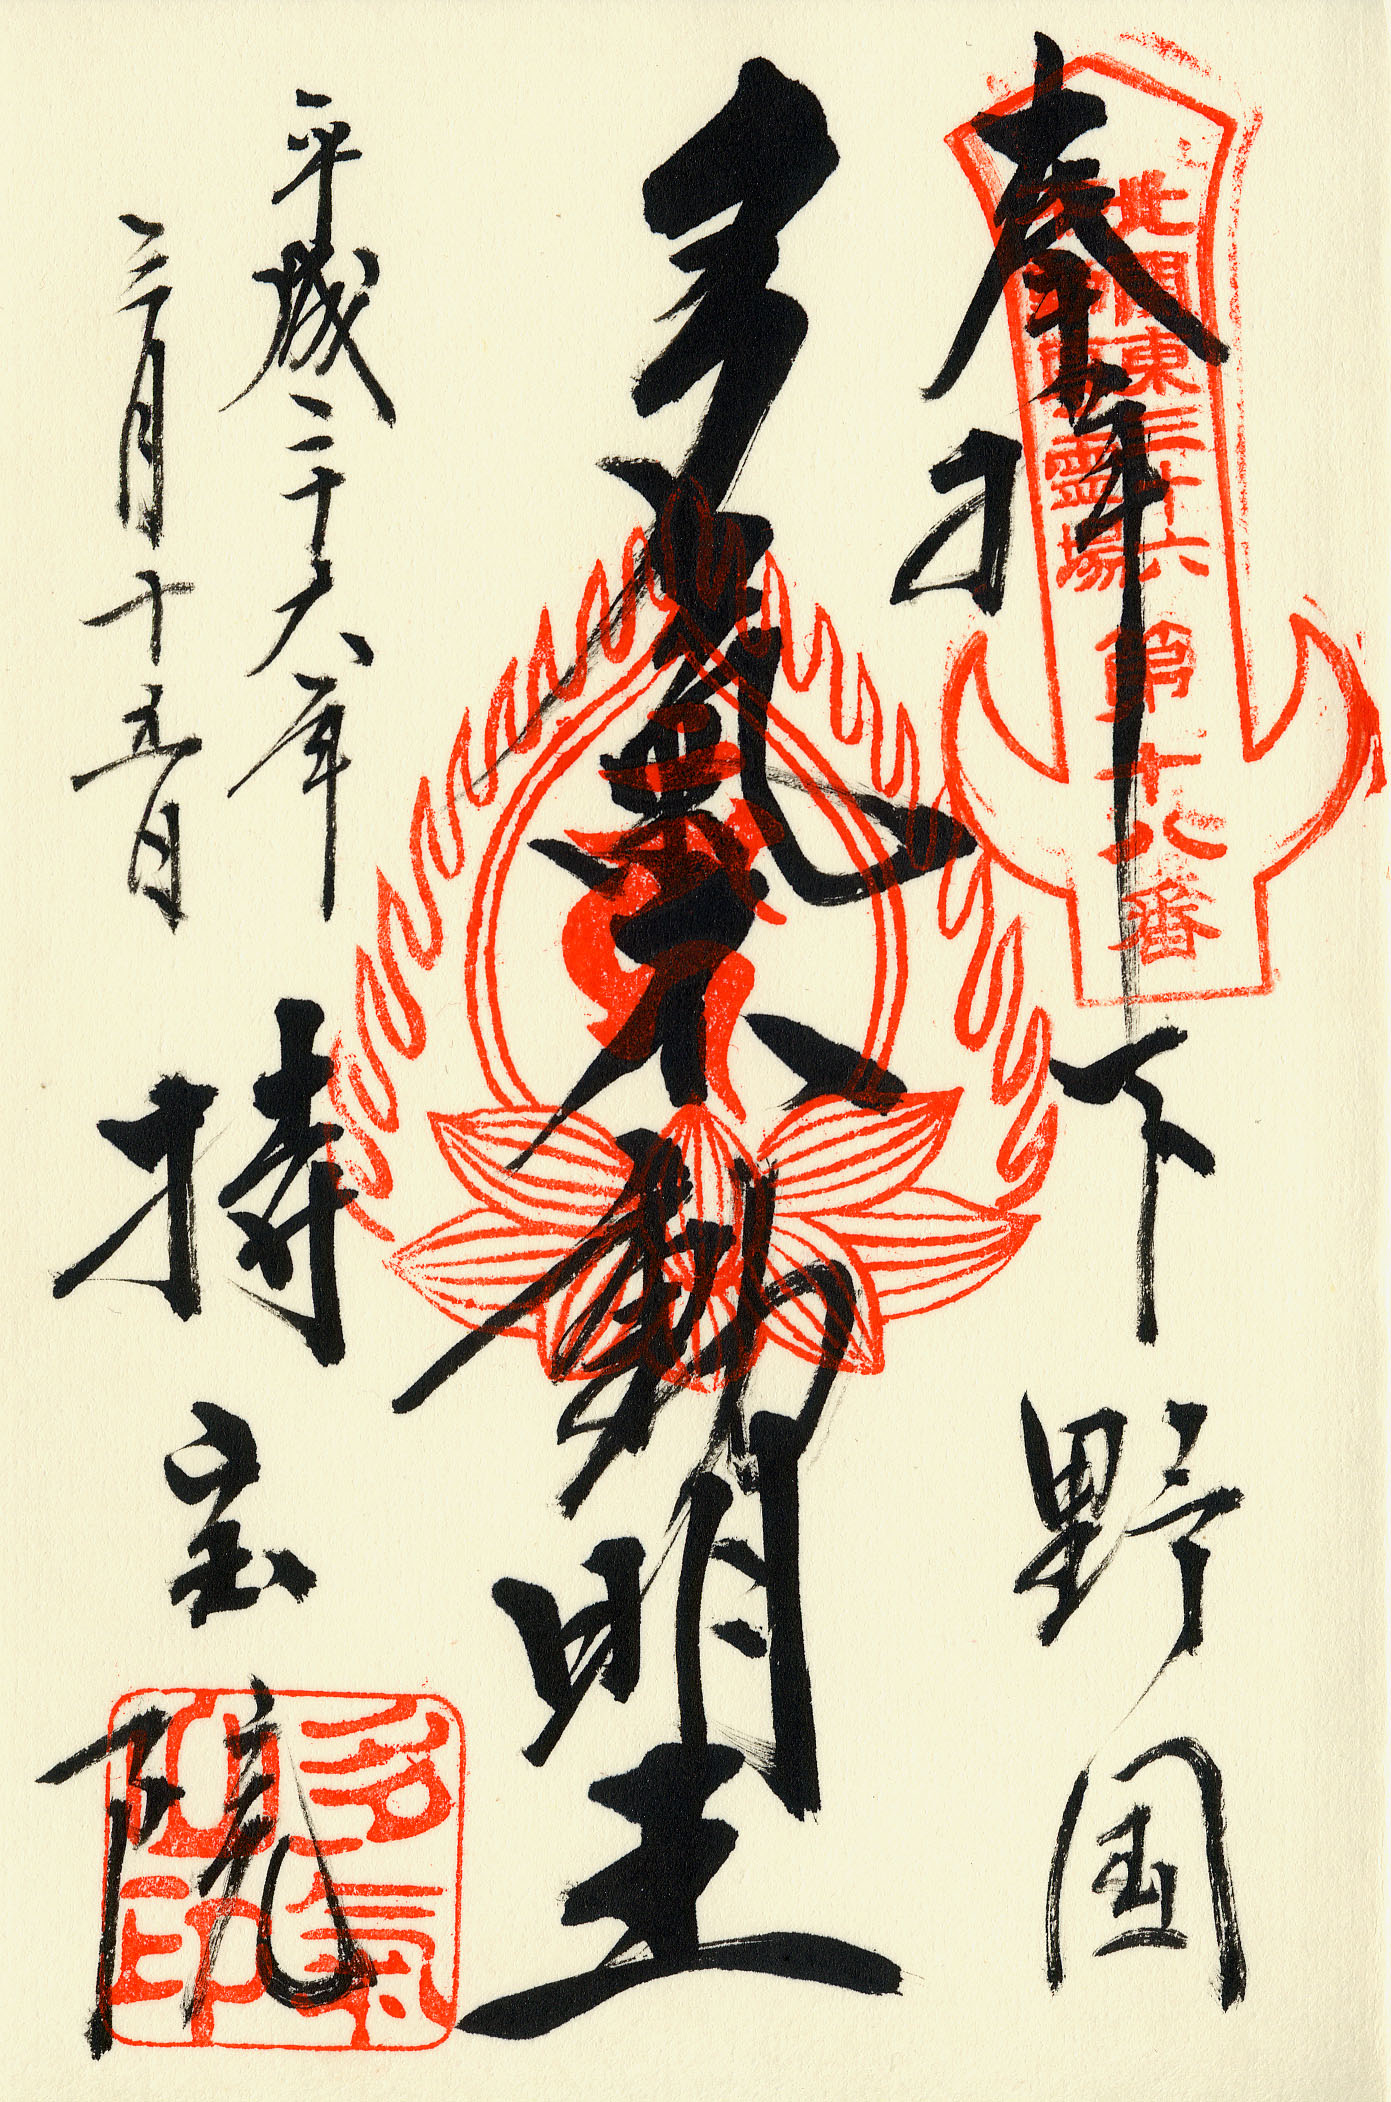 奉拝
下野国
北関東三十六
不動尊霊場
第十八番
多気不動明王
平成二十六年
三月十五日
持宝院
多氣山印